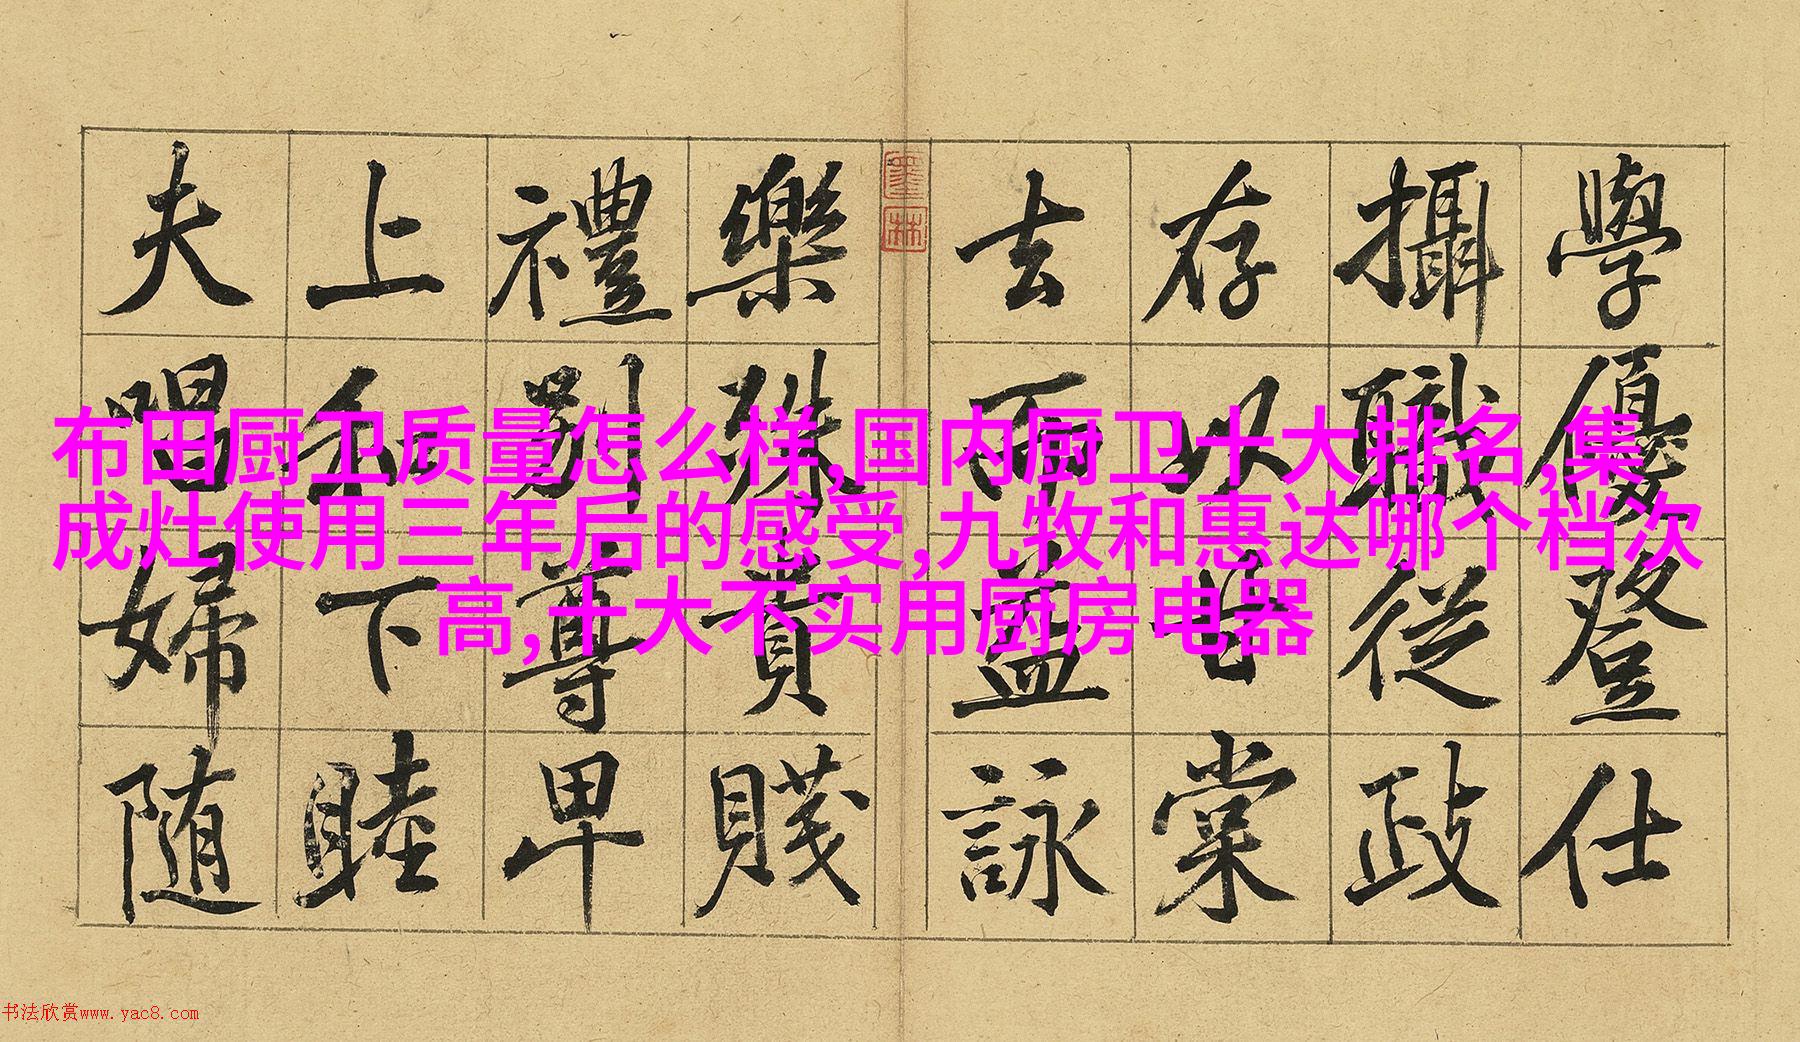 學優登仕
攝職從政
存以甘棠
去而益詠
樂殊貴賤
禮別尊卑
上和下睦
夫唱婦随
墨林
布田厨卫质量怎么样,国内厨卫十大排名,集
成灶使用三年后的感受,九牧和惠达哪个档次
高,十大不实用厨房电器
书法欣赏www.yac8.com